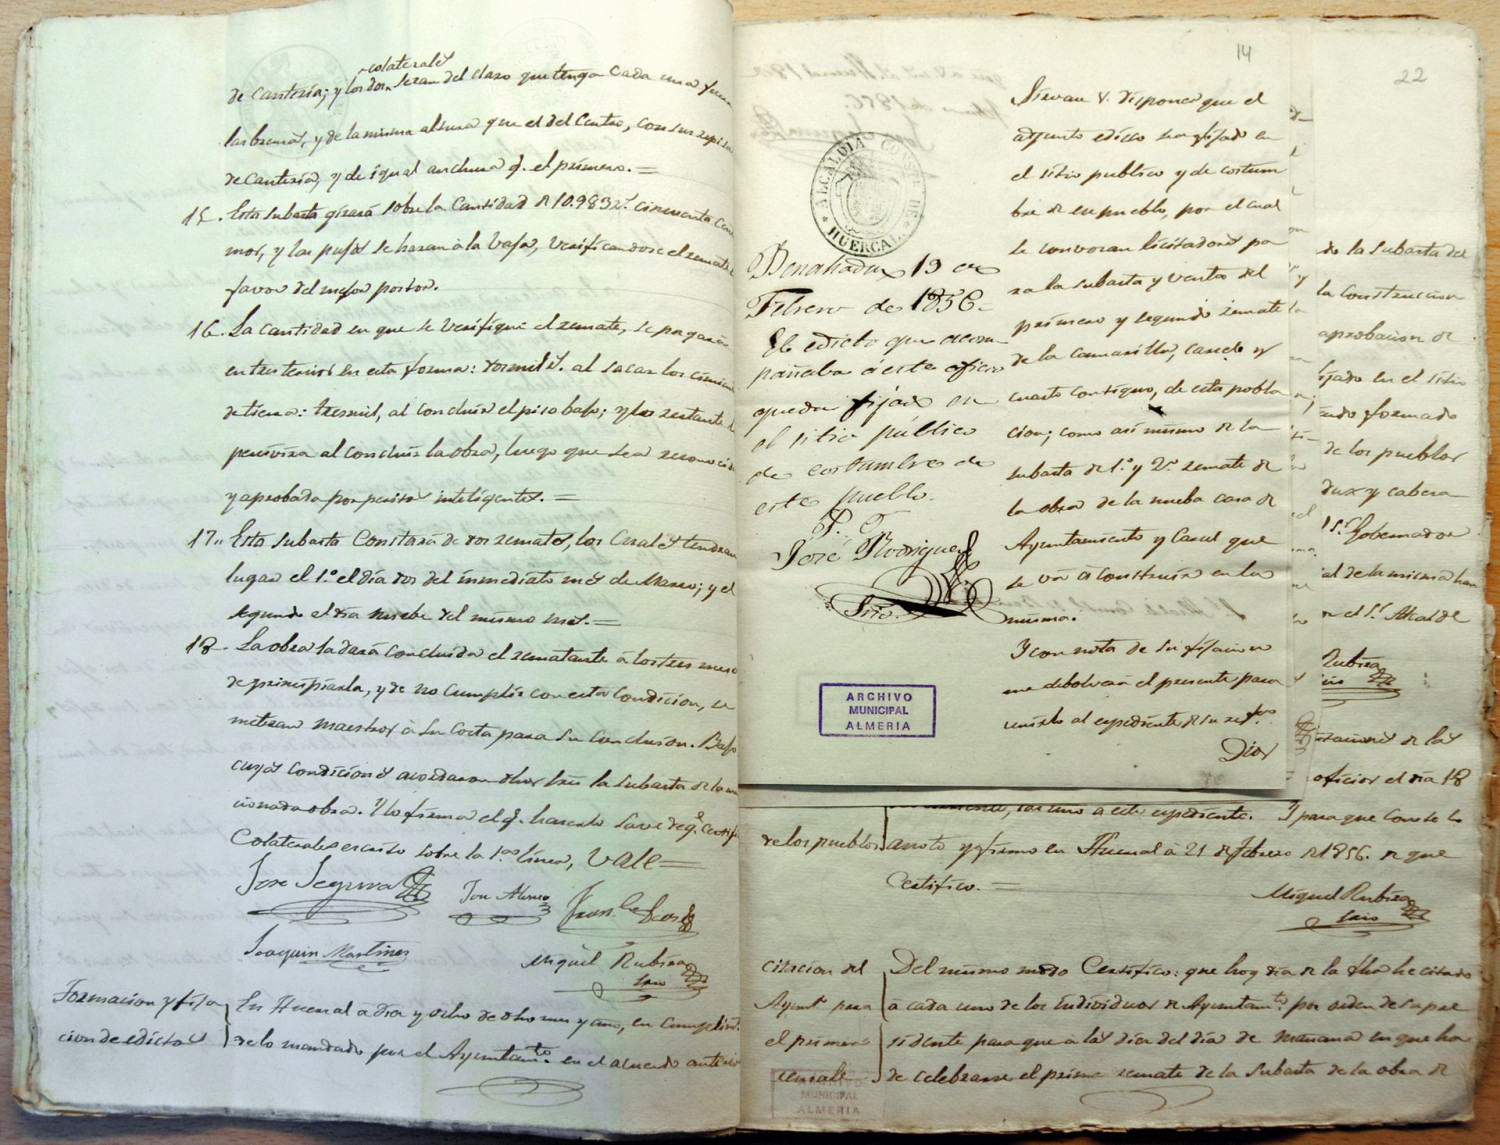 colaterales
de Cantería; y los dos seran del claro que tenga cada una
las buenas, y de la misma altura que el del Centro, con sus repisas
de Cantería, y de igual anchura q. el primero. =
15. Esta subasta girará sobre la Cantidad de 10.983 r.s cincuenta
mos, y las pujas se haran à la baja, verificandose el remate
favor del mejor postor.
16. La cantidad en que se verifique el remate, se pagará
en tres tercios en esta forma: dos mil r.s al sacar los cimien
de tierra: tres mil, al concluir el piso bajo; y los restantes
percivira al concluir la obra, luego que sea reconocida
y aprobada por peritos inteligentes. =
17. Esta subasta Constara de dos remates, los Cuales tendran
lugar el 1.º el día dos del inmediato mes de Marzo; y el
segundo el dia nuebe del mismo mes. =
18. La obra la dará concluida el rematante à los tres meses
de principiarla, y de no Cumplir con esta Condicion, se
meteran maestros à su Costa para su Conclusion. Bajo
cuyas condiciones acordaron dhos la subasta de la
cionada obra. Y lo firma el q.
Colaterales escrito sobre la 1.ª linea, Vale =
Jose Segura
Joaquin Martinez
Miguel Rubira
Srio
Formacion y fija
cion de edictos
En Huercal a dia y ocho de dho mes y año, en Cumplim.to
de lo mandado por el Ayuntam.to en el acuerdo anterior
14
22
ALCALDIA CONST. DE
HUERCAL
Benahadux 19 de
Febrero de 1856 =
El edicto que acom
pañaba à este oficio
queda fijado en
el sitio público
de costumbre de
este pueblo.
José Rodriguez
Srio.
ARCHIVO
MUNICIPAL
ALMERIA
Sirvase V. disponer que el
adjunto edicto sea fijado en
el sitio publico y de costum
bre de ese pueblo, por el cual
se convocan licitadores pa
ra la subasta y ventas del
primero y segundo remate
de la camarilla, carcel y
cuarto contiguo, de esta pobla
cion; como asi mismo de la
subasta de 1.º y 2.º remate de
la obra de la nueba casa de
Ayuntamiento y Carcel que
se vá à Construir en la
misma.
Y con nota de su fijacion
me debolverá el presente para
unirlo al espediente de su
Dios
de la Subasta del
la construccion
aprobacion de
fijado en el sitio
de los pueblos
dux y cabera
Sr. Gobernador
ial de la misma han
el Sr Alcalde
Rubira
Srio
de las
oficios el dia 18
de los pueblos
uno à este espediente. Y para que Conste lo
anoto y firmo en Huercal à 21 de Febrero de 1856. de que
Certifico. =
Miguel Rubira
Srio
citacion del
Ayunt.o para
el primer
remate
Del mismo modo Certifico: que hoy dia de la fha he citado
à cada uno de los individuos de Ayuntam.to por orden de su pre
sidente para que à las diez del dia de mañana en que ha
de celebrarse el primer remate de la Subasta de la obra de
ARCHIVO
MUNICIPAL
ALMERIA